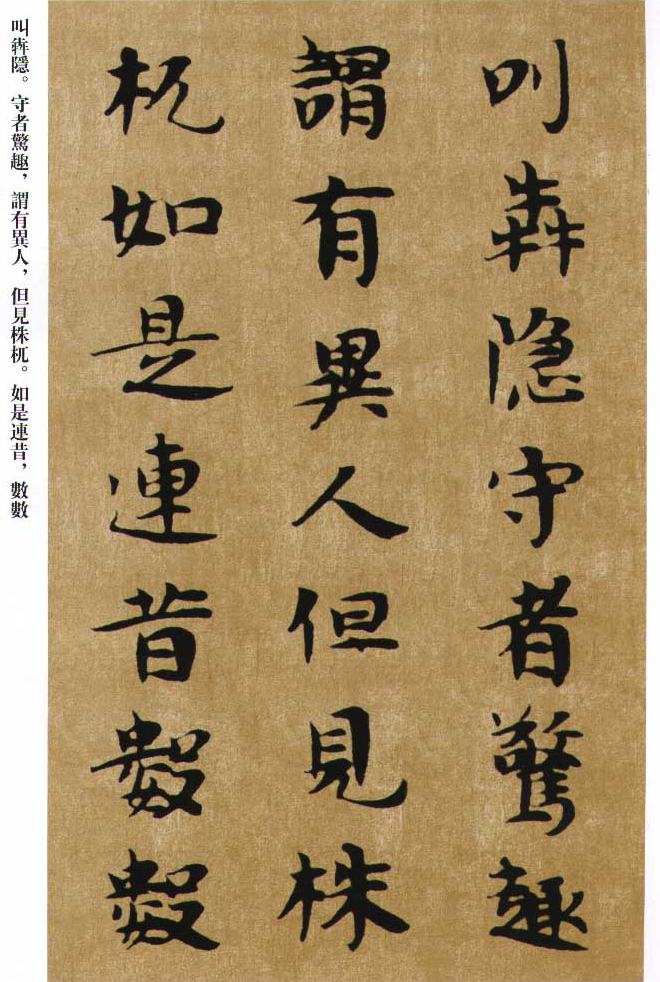 叫犇隱守者驚趣
謂有異人但見株
杌如是連昔數數
叫犇隱。守者驚趣，謂有異人，但見株杌。如是連昔，數數